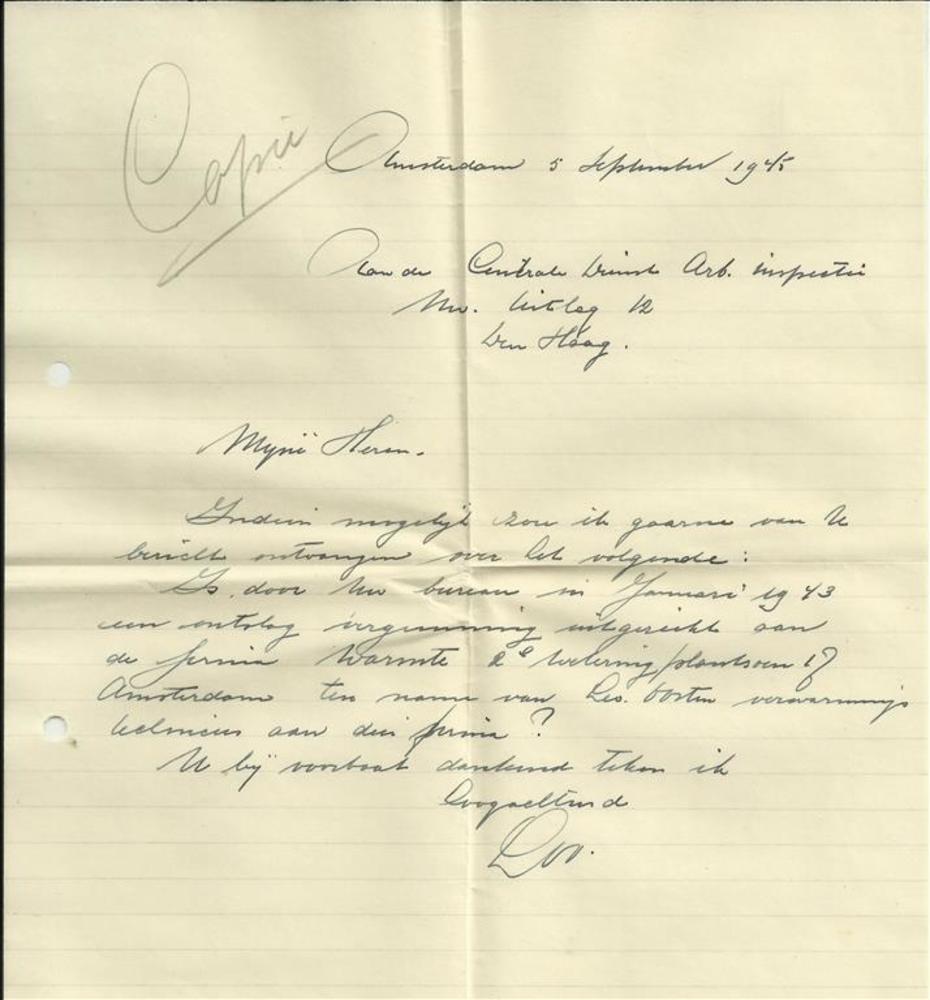 Copie
Amsterdam 5 September 1945
Aan de Centrale Dienst Arb. inspectie
Nw. Uitleg 12
Den Haag.
Mijne Heren.
Indien mogelijk zou ik gaarne van U
bericht ontvangen over het volgende:
Is door Uw bureau in Januari 1943
een ontslag vergunning uitgereikt aan
de firma Warmte 2e Weteringplantsoen 17
Amsterdam ten name van Leo. Oosten verwarmings
technicus aan die firma?
U bij voorbaat dankend teken ik
Hoogachtend